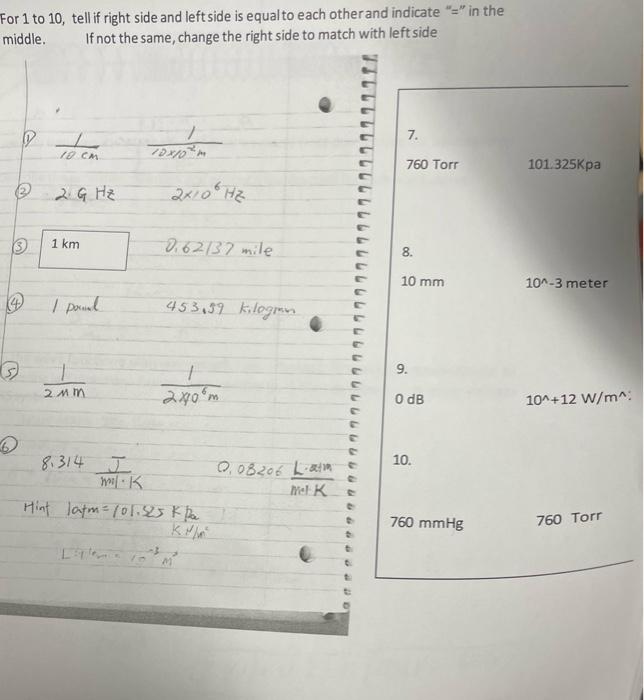 For 1 to 10, tell if right side and left side is equal to each other and indicate “=” in the
middle. If not the same, change the right side to match with left side
① 1/10 cm 1/10x10^-2 m
② 2 G Hz 2x10^6 Hz
③ 1 km 0.62137 mile
④ 1 pound 453.59
⑤ 1/2 μm 1/
⑥ 8.314 J/mol·K 0.08206 L·atm/mol·K
Hint 1atm = 101.325 K Pa
K N/m²
10^-3 m³
7.
760 Torr 101.325Kpa
8.
10 mm 10^-3 meter
9.
0 dB 10^+12 W/m^
10.
760 mmHg 760 Torr